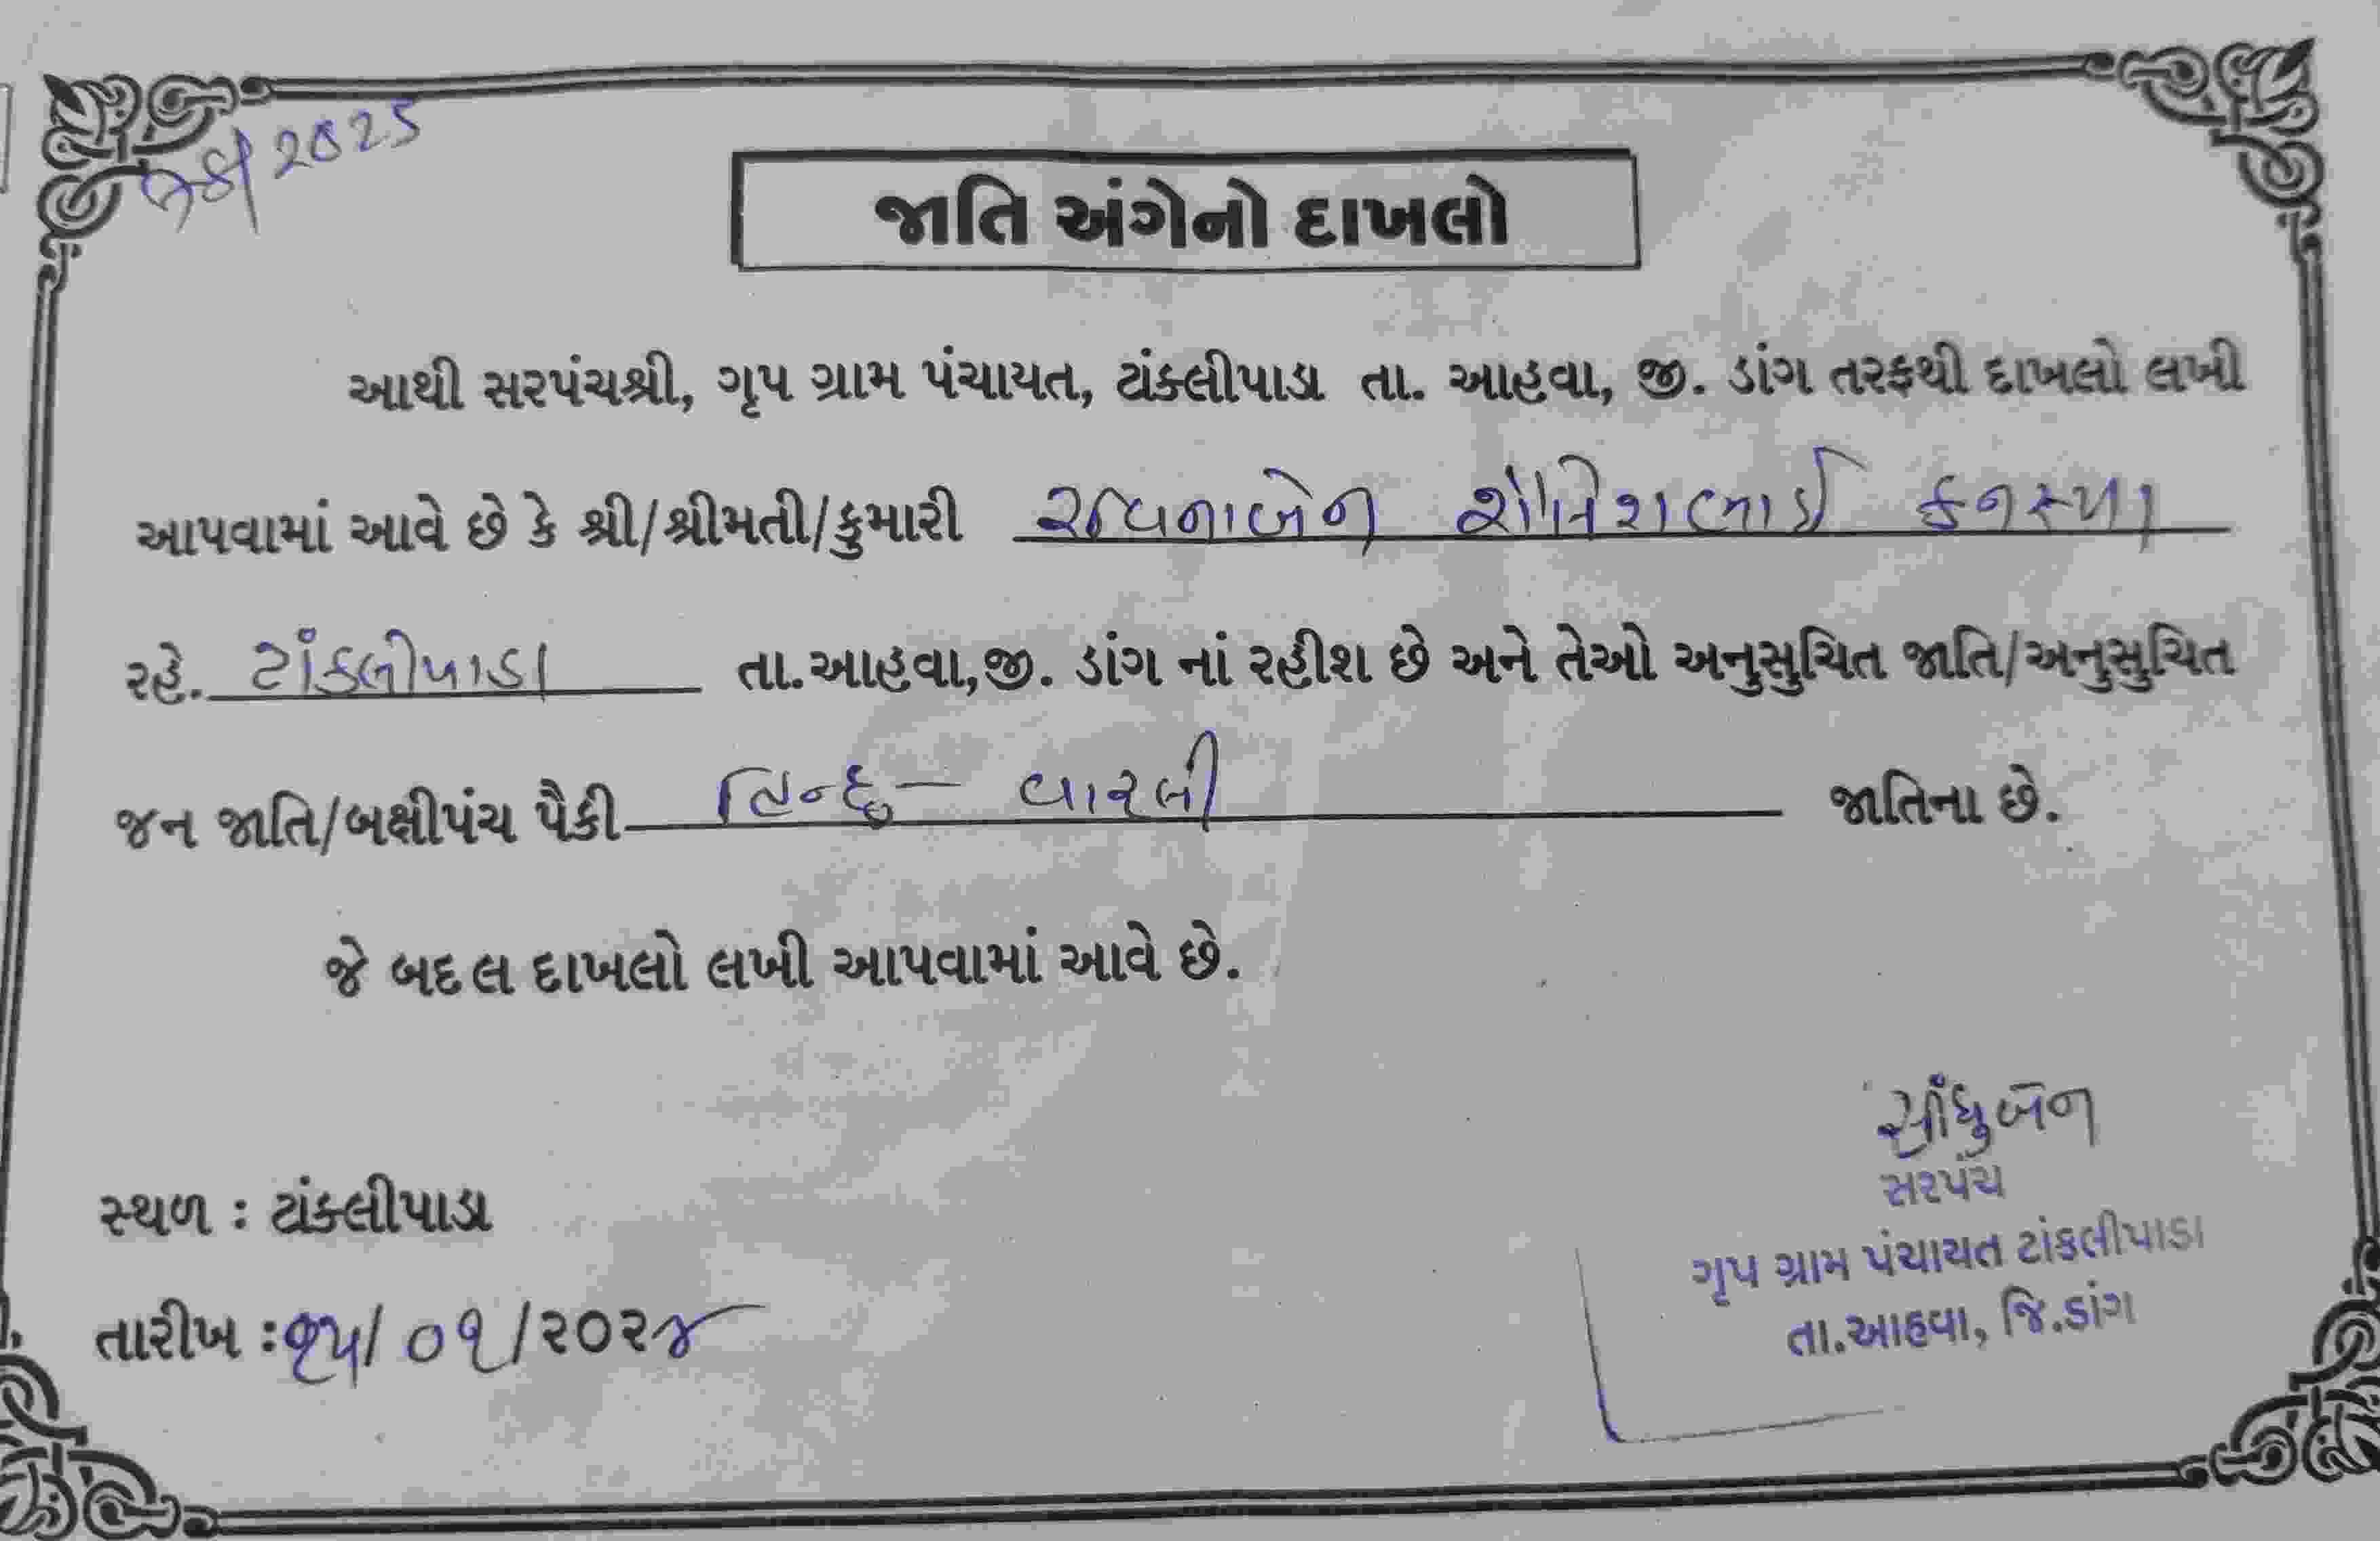 /2025
જાતિ અંગેનો દાખલો
આથી સરપંચશ્રી, ગૃપ ગ્રામ પંચાયત, ટાંક્લીપાડા તા. આહવા, જી. ડાંગ તરફથી દાખલો લખી
આપવામાં આવે છે કે શ્રી/શ્રીમતી/કુમારી
રહે. ટાંકલીપાડા તા.આહવા,જી. ડાંગ નાં રહીશ છે અને તેઓ અનુસુચિત જાતિ/અનુસુચિત
જન જાતિ/બક્ષીપંચ પૈકી હિન્દુ - વારલી જાતિના છે.
જે બદલ દાખલો લખી આપવામાં આવે છે.
સરપંચ
સ્થળ : ટાંક્લીપાડા
ગૃપ ગ્રામ પંચાયત ટાંકલીપાડા
તારીખ :૧૫/૦૧/૨૦૨૪
તા.આહવા, જિ.ડાંગ